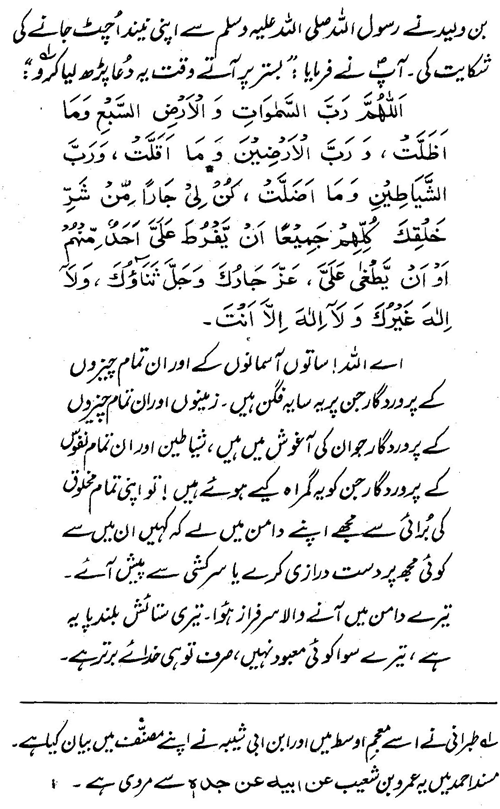 بن ولید نے رسول اللہ صلی اللہ علیہ وسلم سے اپنی نیند اُچٹ جانے کی
شکایت کی۔ آپؐ نے فرمایا: "بستر پر آتے وقت یہ دُعا پڑھ لیا کرو":
اَللّٰهُمَّ رَبَّ السَّمٰوَاتِ وَ الْاَرْضِ السَّبْعِ وَمَا
اَظَلَّتْ، وَ رَبَّ الْاَرْضِيْنَ وَ مَا اَقَلَّتْ، وَرَبَّ
الشَّيَاطِيْنِ وَ مَا اَضَلَّتْ، كُنْ لِيْ جَارًا مِّنْ شَرِّ
خَلْقِكَ كُلِّهِمْ جَمِيْعًا اَنْ يَّفْرُطَ عَلَيَّ اَحَدٌ مِّنْهُمْ
اَوْ اَنْ يَّطْغٰى عَلَيَّ، عَزَّ جَارُكَ وَجَلَّ ثَنَاؤُكَ، وَلَآ
اِلٰهَ غَيْرُكَ وَ لَآ اِلٰهَ اِلَّا اَنْتَ۔
اے اللہ! ساتوں آسمانوں کے اور ان تمام چیزوں
کے پروردگار جن پر یہ سایہ فگن ہیں۔ زمینوں اور ان تمام چیزوں
کے پروردگار جو ان کی آغوش میں ہیں، شیاطین اور ان تمام نفوس
کے پروردگار جن کو یہ گمراہ کیے ہوئے ہیں! تو اپنی تمام مخلوق
کی بُرائی سے مجھے اپنے دامن میں لے کہ کہیں ان میں سے
کوئی مجھ پر دست درازی کرے یا سرکشی سے پیش آئے۔
تیرے دامن میں آنے والا سرفراز ہوُا۔ تیری ستائش بلند پایہ
ہے، تیرے سوا کوئی معبود نہیں، صرف تو ہی خدائے برتر ہے۔
لے طبرانی نے اسے معجم اوسط میں اور ابن ابی شیبہ نے اپنے مصنّف میں بیان کیا ہے۔
مسند احمد میں یہ عمرو بن شعیب عن ابیہ عن جدہ سے مروی ہے۔